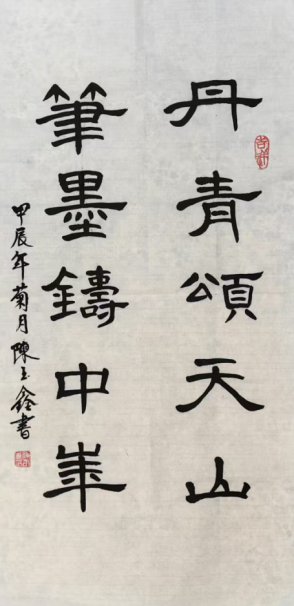 丹青頌天山
筆墨鑄中華
甲辰年菊月陳玉鑫書